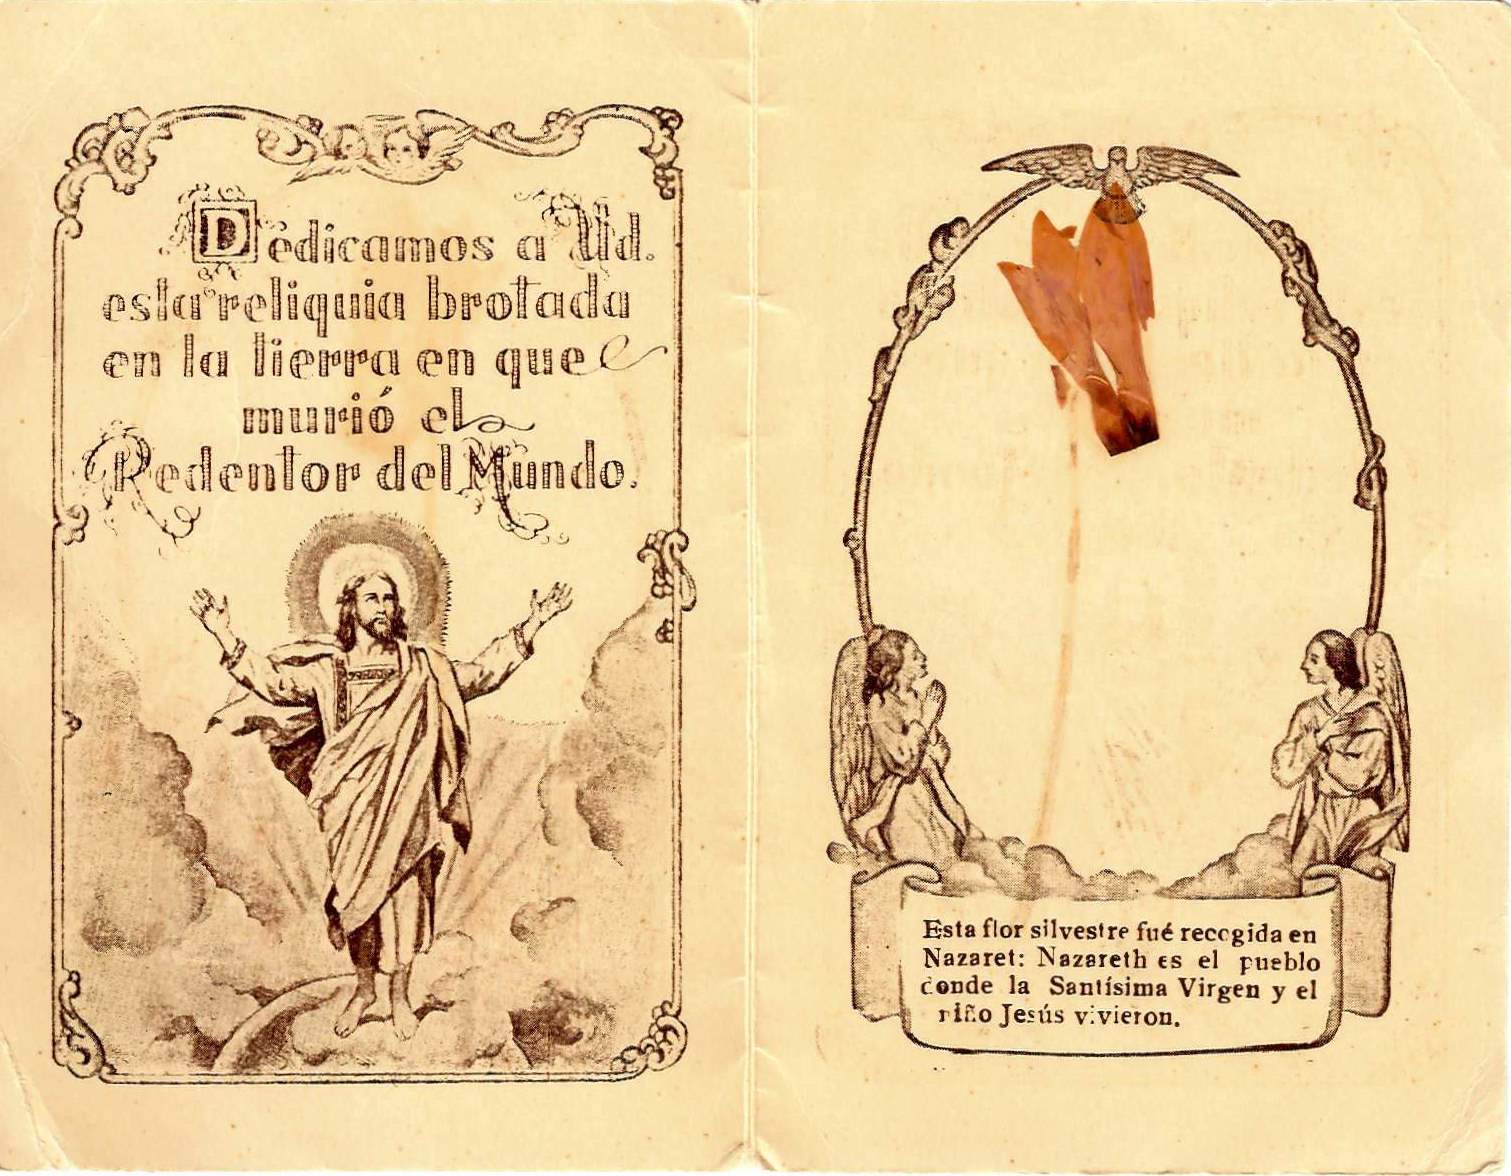 Dedicamos a Ud.
esta reliquia brotada
en la tierra en que
murió el
Redentor del Mundo.
Esta flor silvestre fué recogida en
Nazaret: Nazareth es el pueblo
donde la Santísima Virgen y el
niño Jesús vivieron.